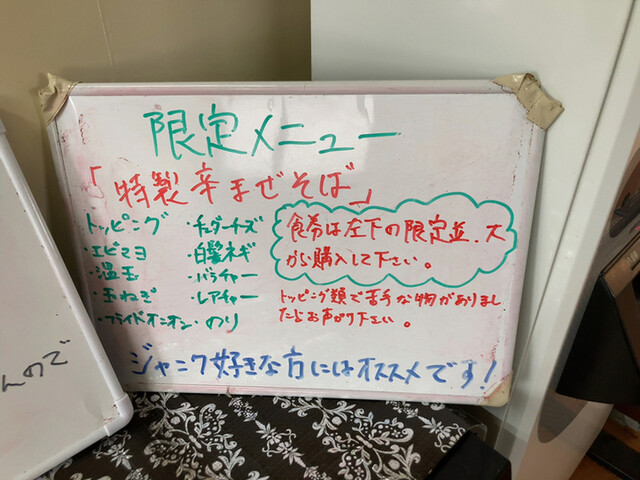 限定メニュー
「特製辛まぜそば」
トッピング
・エビマヨ
・温玉
・玉ねぎ
・フライドオニオン
・チェダーチーズ
・白髪ネギ
・バラチャー
・レアチャー
・のり
食券は左下の限定並、大
から購入して下さい。
トッピング類で苦手な物がありまし
たらお声がけ下さい。
ジャンク好きな方にはオススメです!
んので